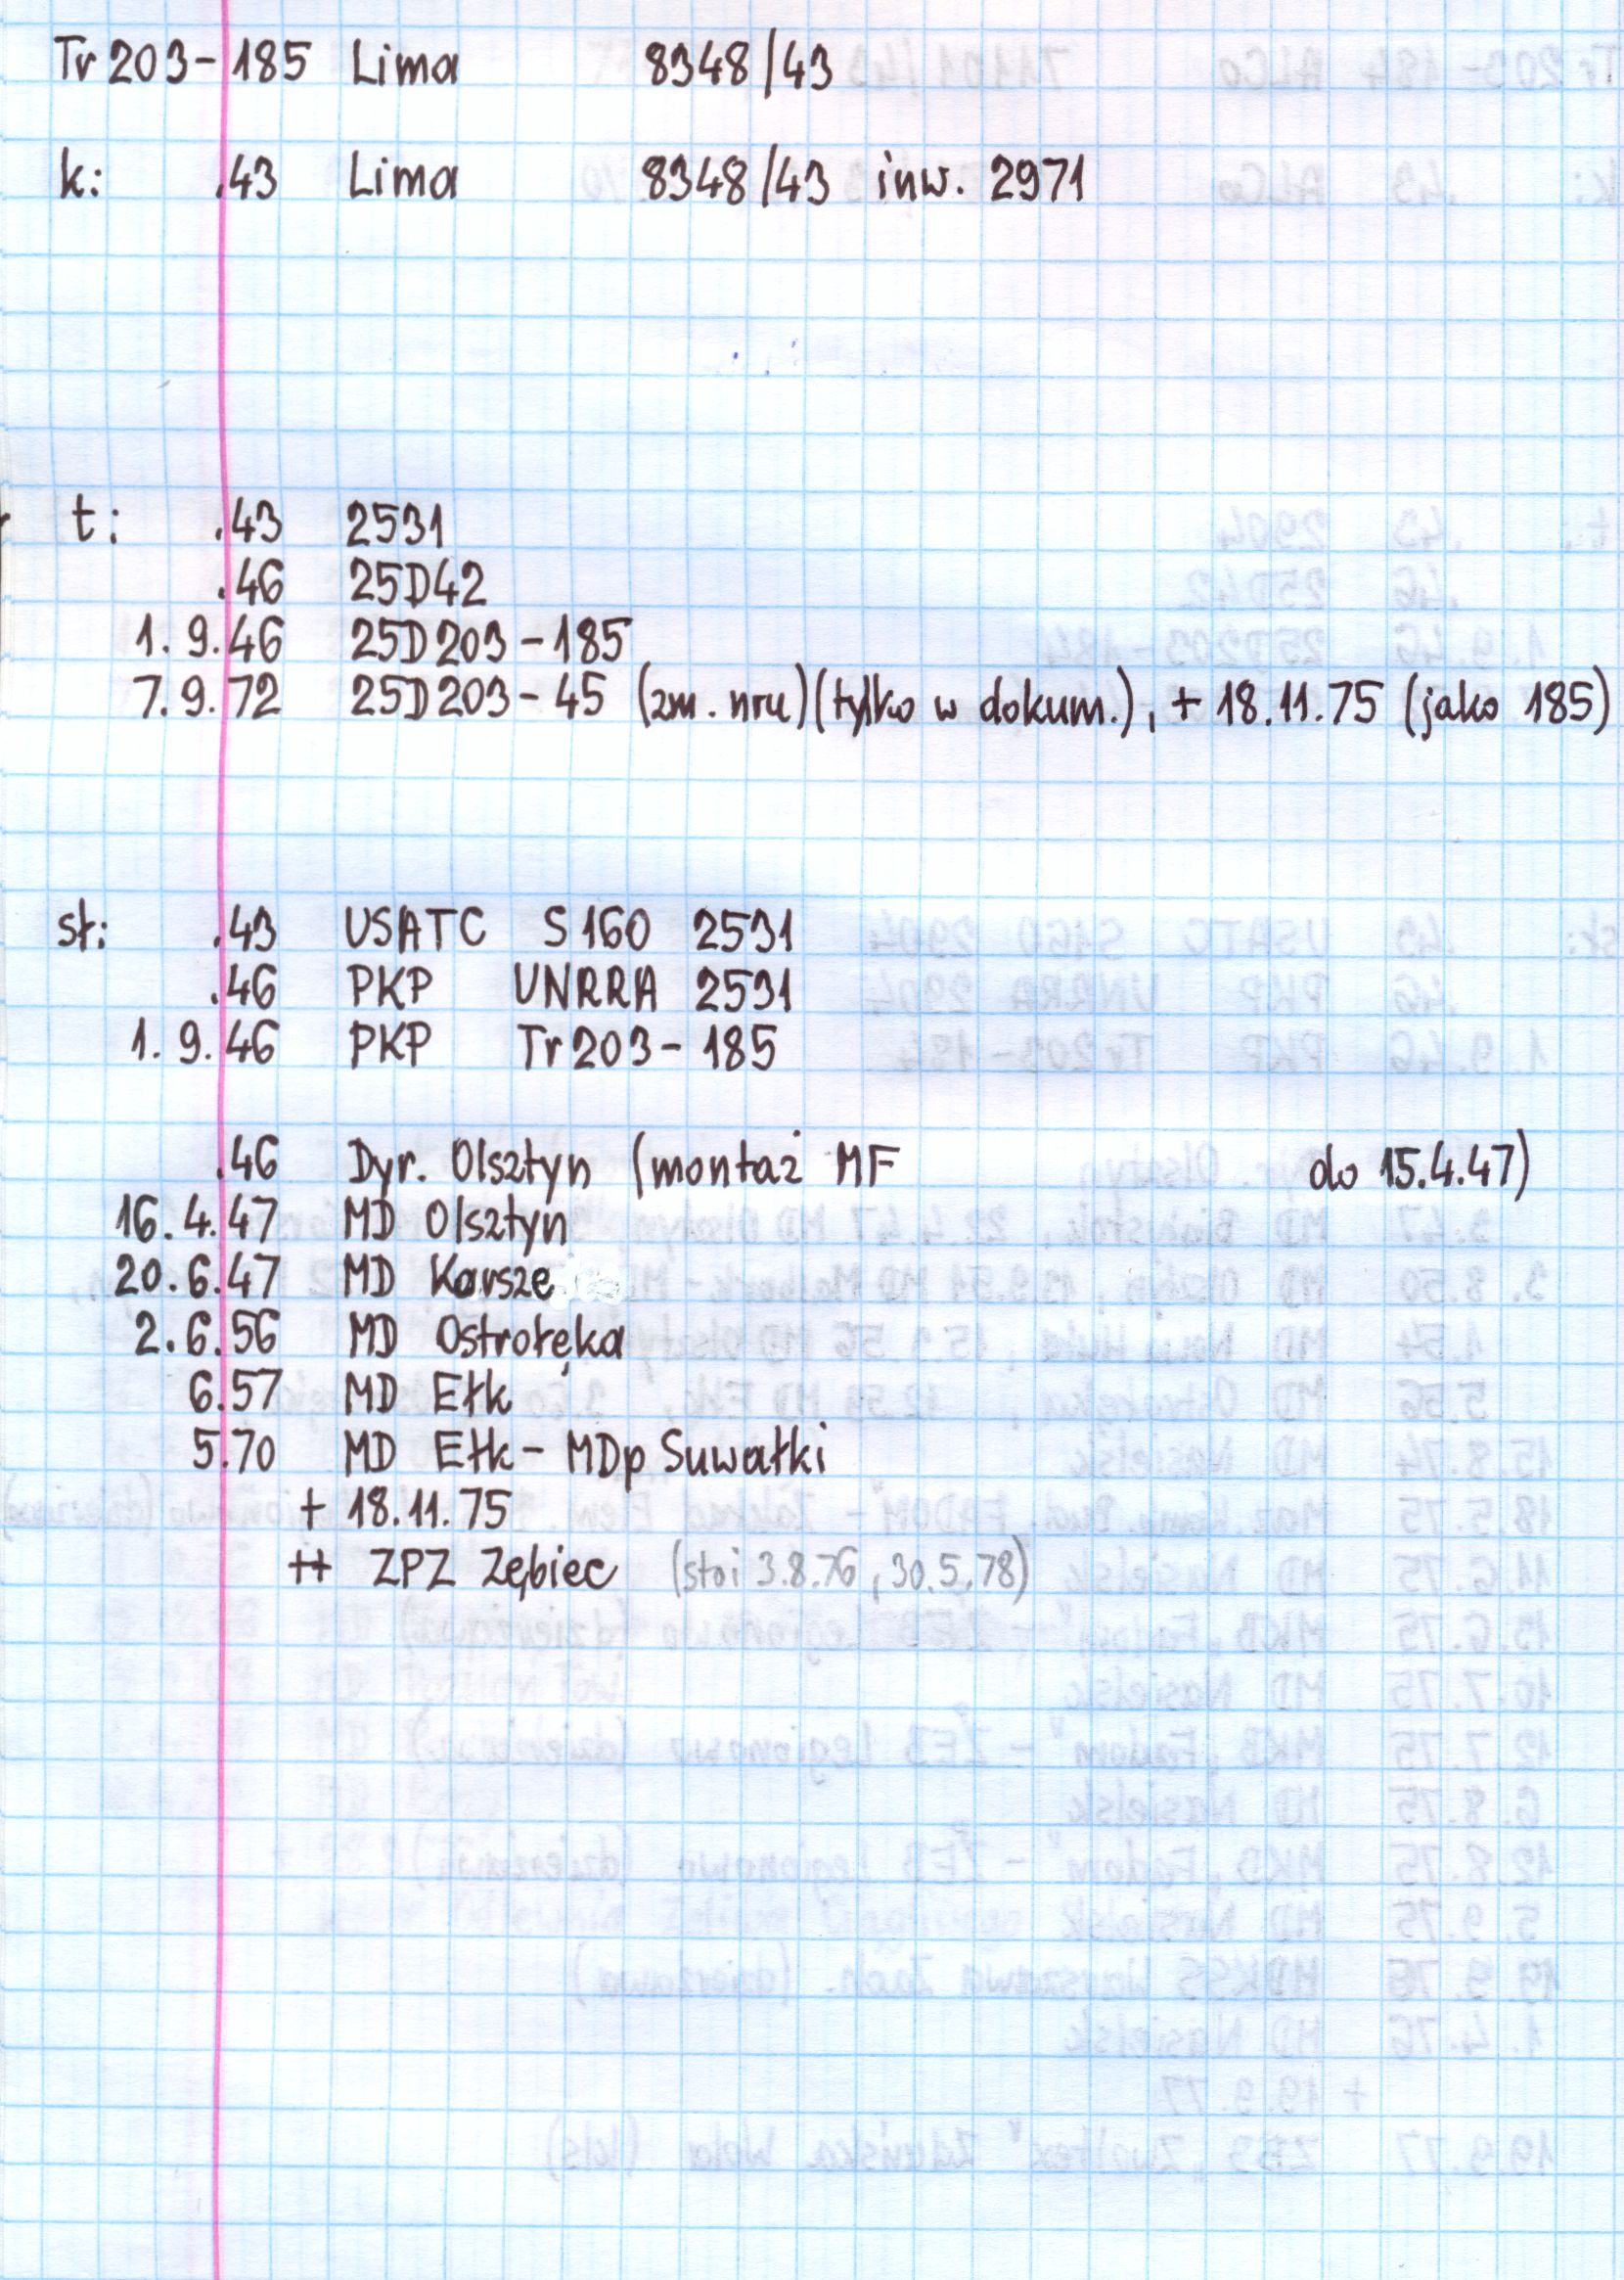 Tr 203-185 Lima 8348/43
k: .43 Lima 8348/43 inw. 2971
t: .43 2531
.46 25D42
1.9.46 25D203-185
7.9.72 25D203-45 (zm. nru)(tylko w dokum.), + 18.11.75 (jako 185)
st: .43 USATC S160 2531
.46 PKP UNRRA 2531
1.9.46 PKP Tr203-185
.46 Dyr. Olsztyn (montaż MF do 15.4.47)
16.4.47 MD Olsztyn
20.6.47 MD Korsze
2.6.56 MD Ostrołęka
6.57 MD Ełk
5.70 MD Ełk - MDp Suwałki
+ 18.11.75
++ ZPZ Zębiec (stoi 3.8.76, 30.5.78)